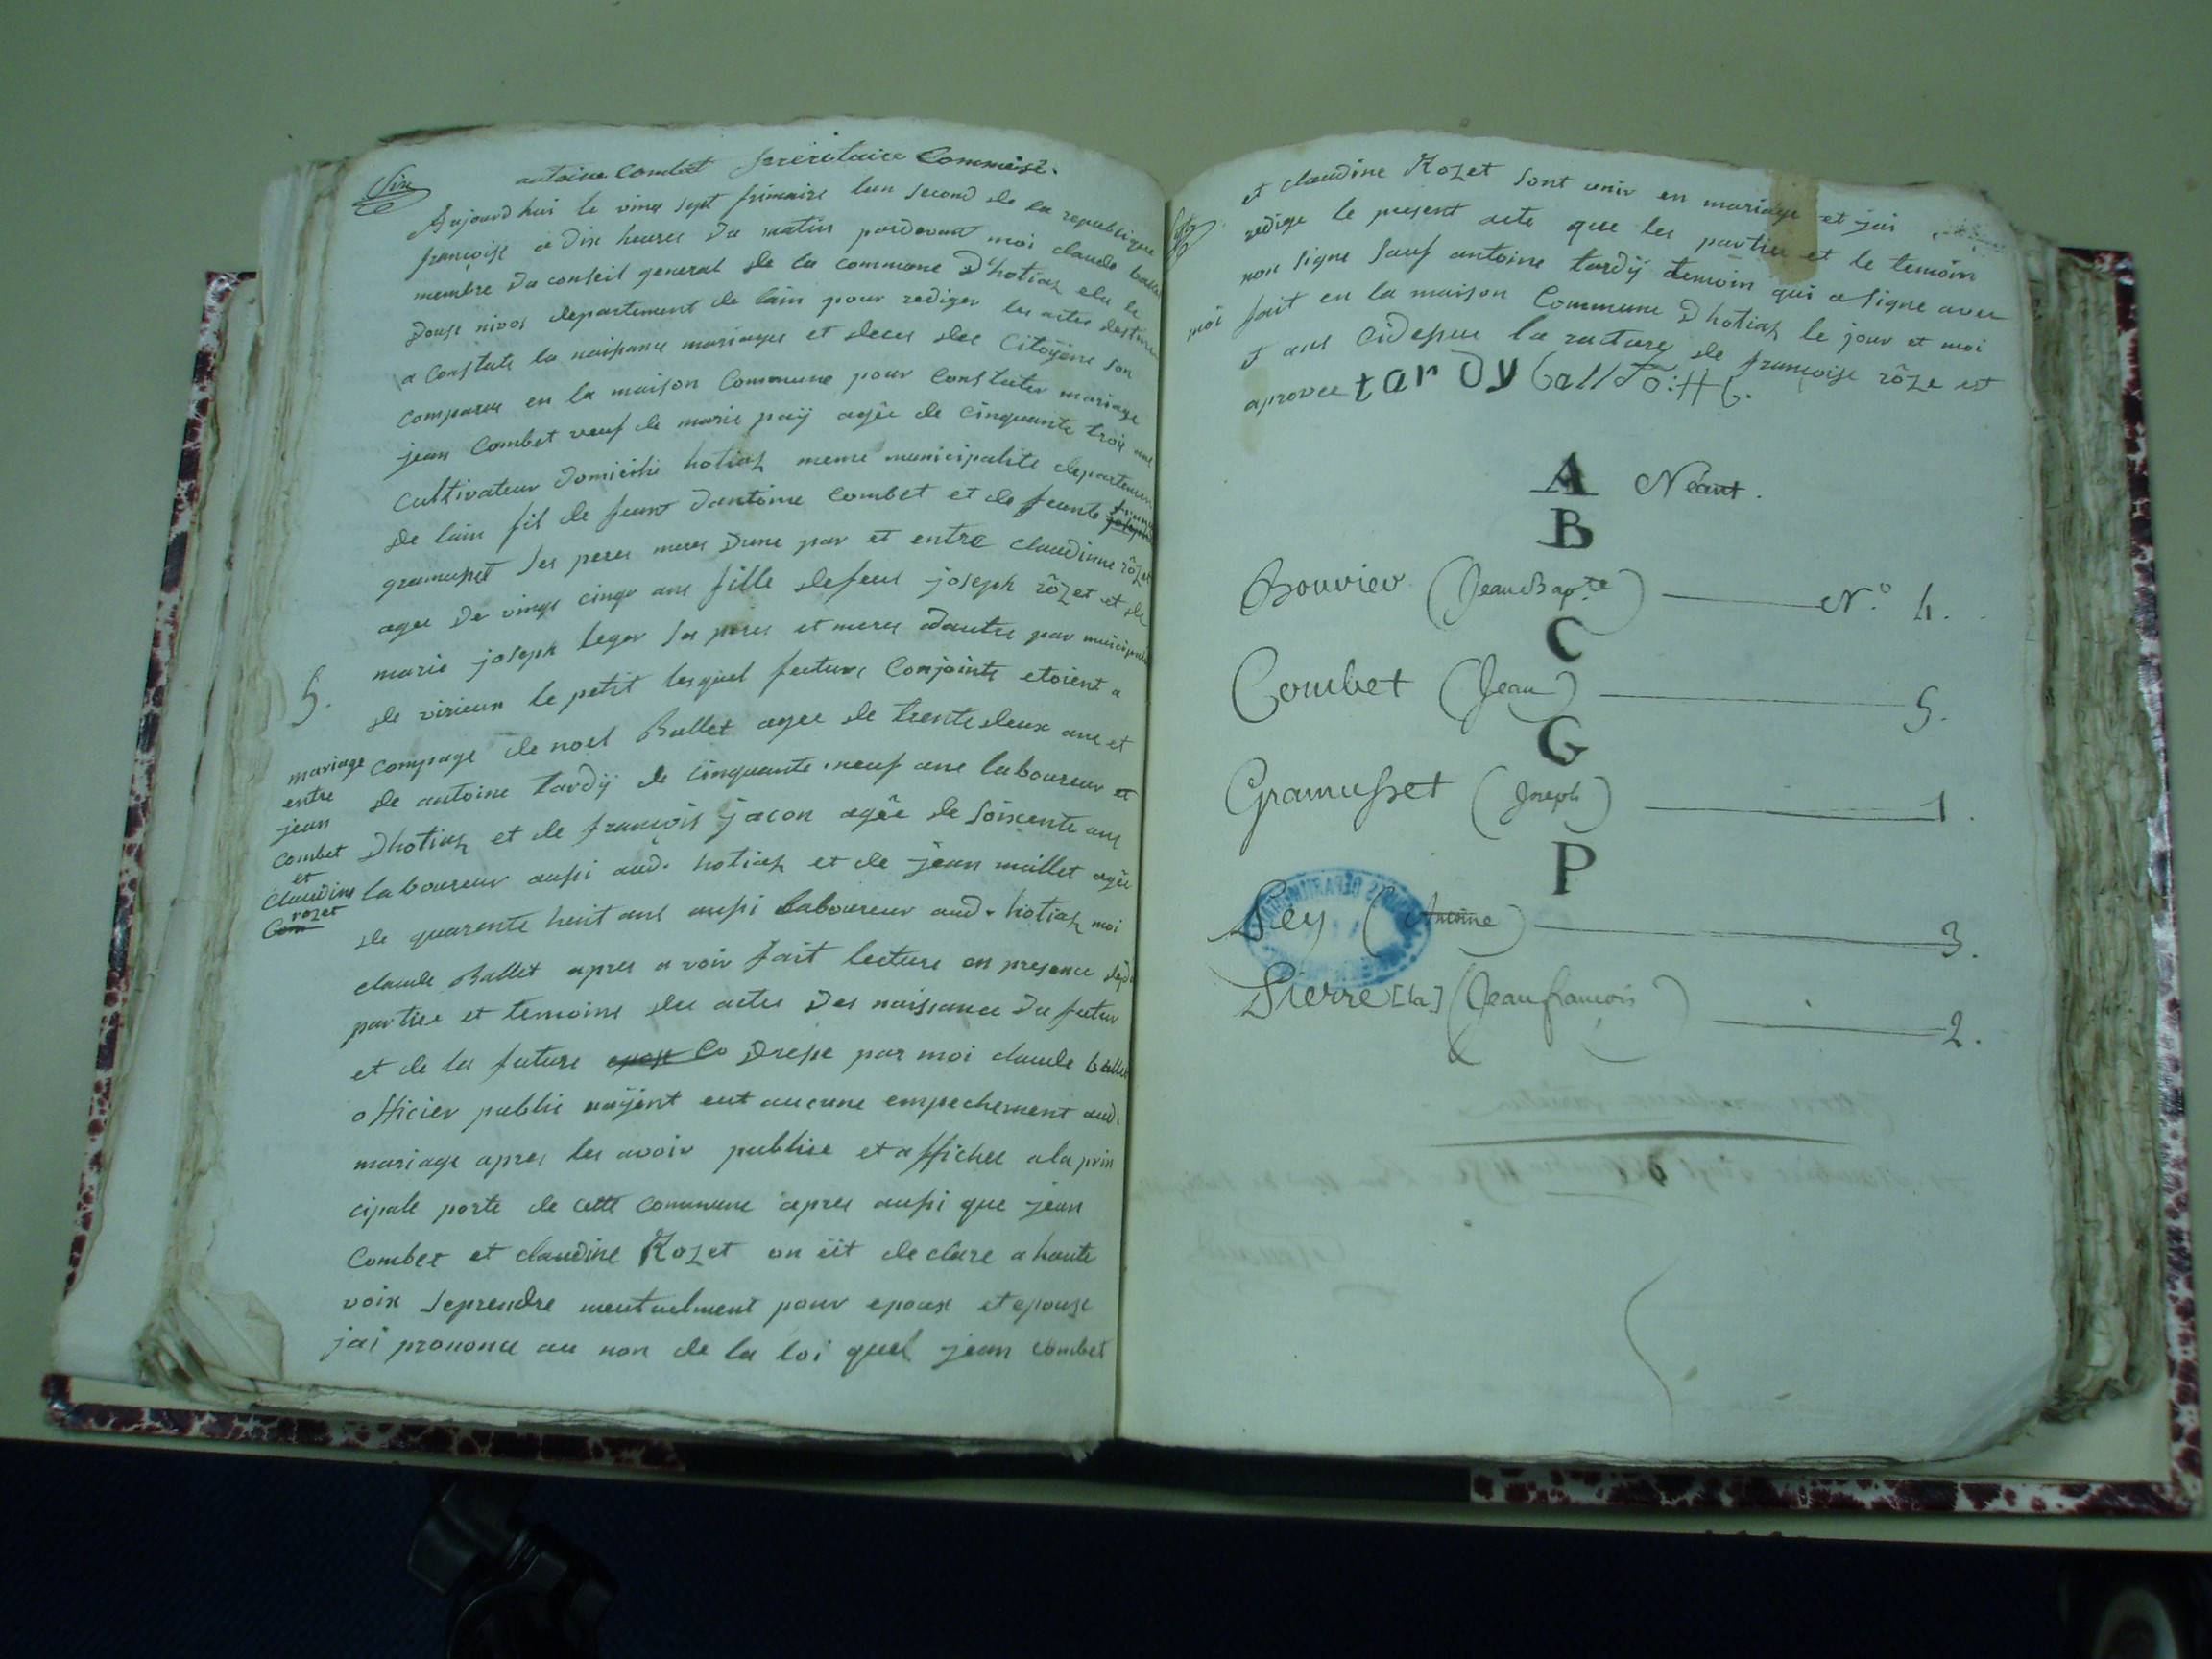 Six
antoine Combet secretaire Commise.
Aujourdhui le ving sept frimaire lan second de la republique
françoise a dix heures du matin pardevant moi claude ballet
membre du conseil general de la commune d'hotiaz elu le
douse nivos departement de lain pour rediger les actes destine
a Constate la naissance mariages et deces des Citoÿens son
comparus en la maison Commune pour Constater mariage
jean Combet veuf de marie paÿ agée de cinquante trois ans
cultivateur domicilie hotiaz meme municipalite departement
de lain fil de feut dantoine combet et de feante
gramusset ses peres meres dune par et entre claudinne rôzet
agee de vingt cinq ans fille defeus joseph rôzet et de
marie joseph leger ses peres et meres dautre par municipalite
de virieux le petit lesquel futurs Conjoints etoient a
compage de noel Ballet agee de trente deux ans et
de antoine tardÿ de cinquante neuf ans laboureur et
Dhotiaz et de françois jacon agêe de soixente ans
laboureur aussi aud. hotiaz et de jean maillet agée
de quarente huit ans aussi laboureur aud. hotiaz moi
claude Ballet apres avoir fait lecture en presence des
parties et temoins des actes des naissance du futur
et de la future epouse Co dresse par moi claude ballet
officier public naÿent eut aucune empechement aud.
mariage apres les avoir publiee et affichee ala prin
cipale porte de cette commune apres aussi que jean
Combet et claudine Rozet on eüt declare a haute
voix seprendre meutuelment pour epoux et epouse
jai prononce au non de la loi quel jean combet
5.
mariage
entre
jean
combet
et
claudine
rozet
Com
et claudine Rozet sont unir en mariage et jai
redige le present acte que les parties et le temoin
non signe sauf antoine tardÿ temoin qui a signe avec
moi fait en la maison Commune Dhotiaz le jour et moi
et ans cidessus la rature de françoise rôze est
aprouvee tardy ballet off.
A Néant.
B
Bouvier (Jean Bapte) N.o 4.
C
Combet (Jean) 5.
G
Gramusset (Joseph) 1.
P
Pey (Antoine) 3.
Pierre [la] (Jean françois) 2.